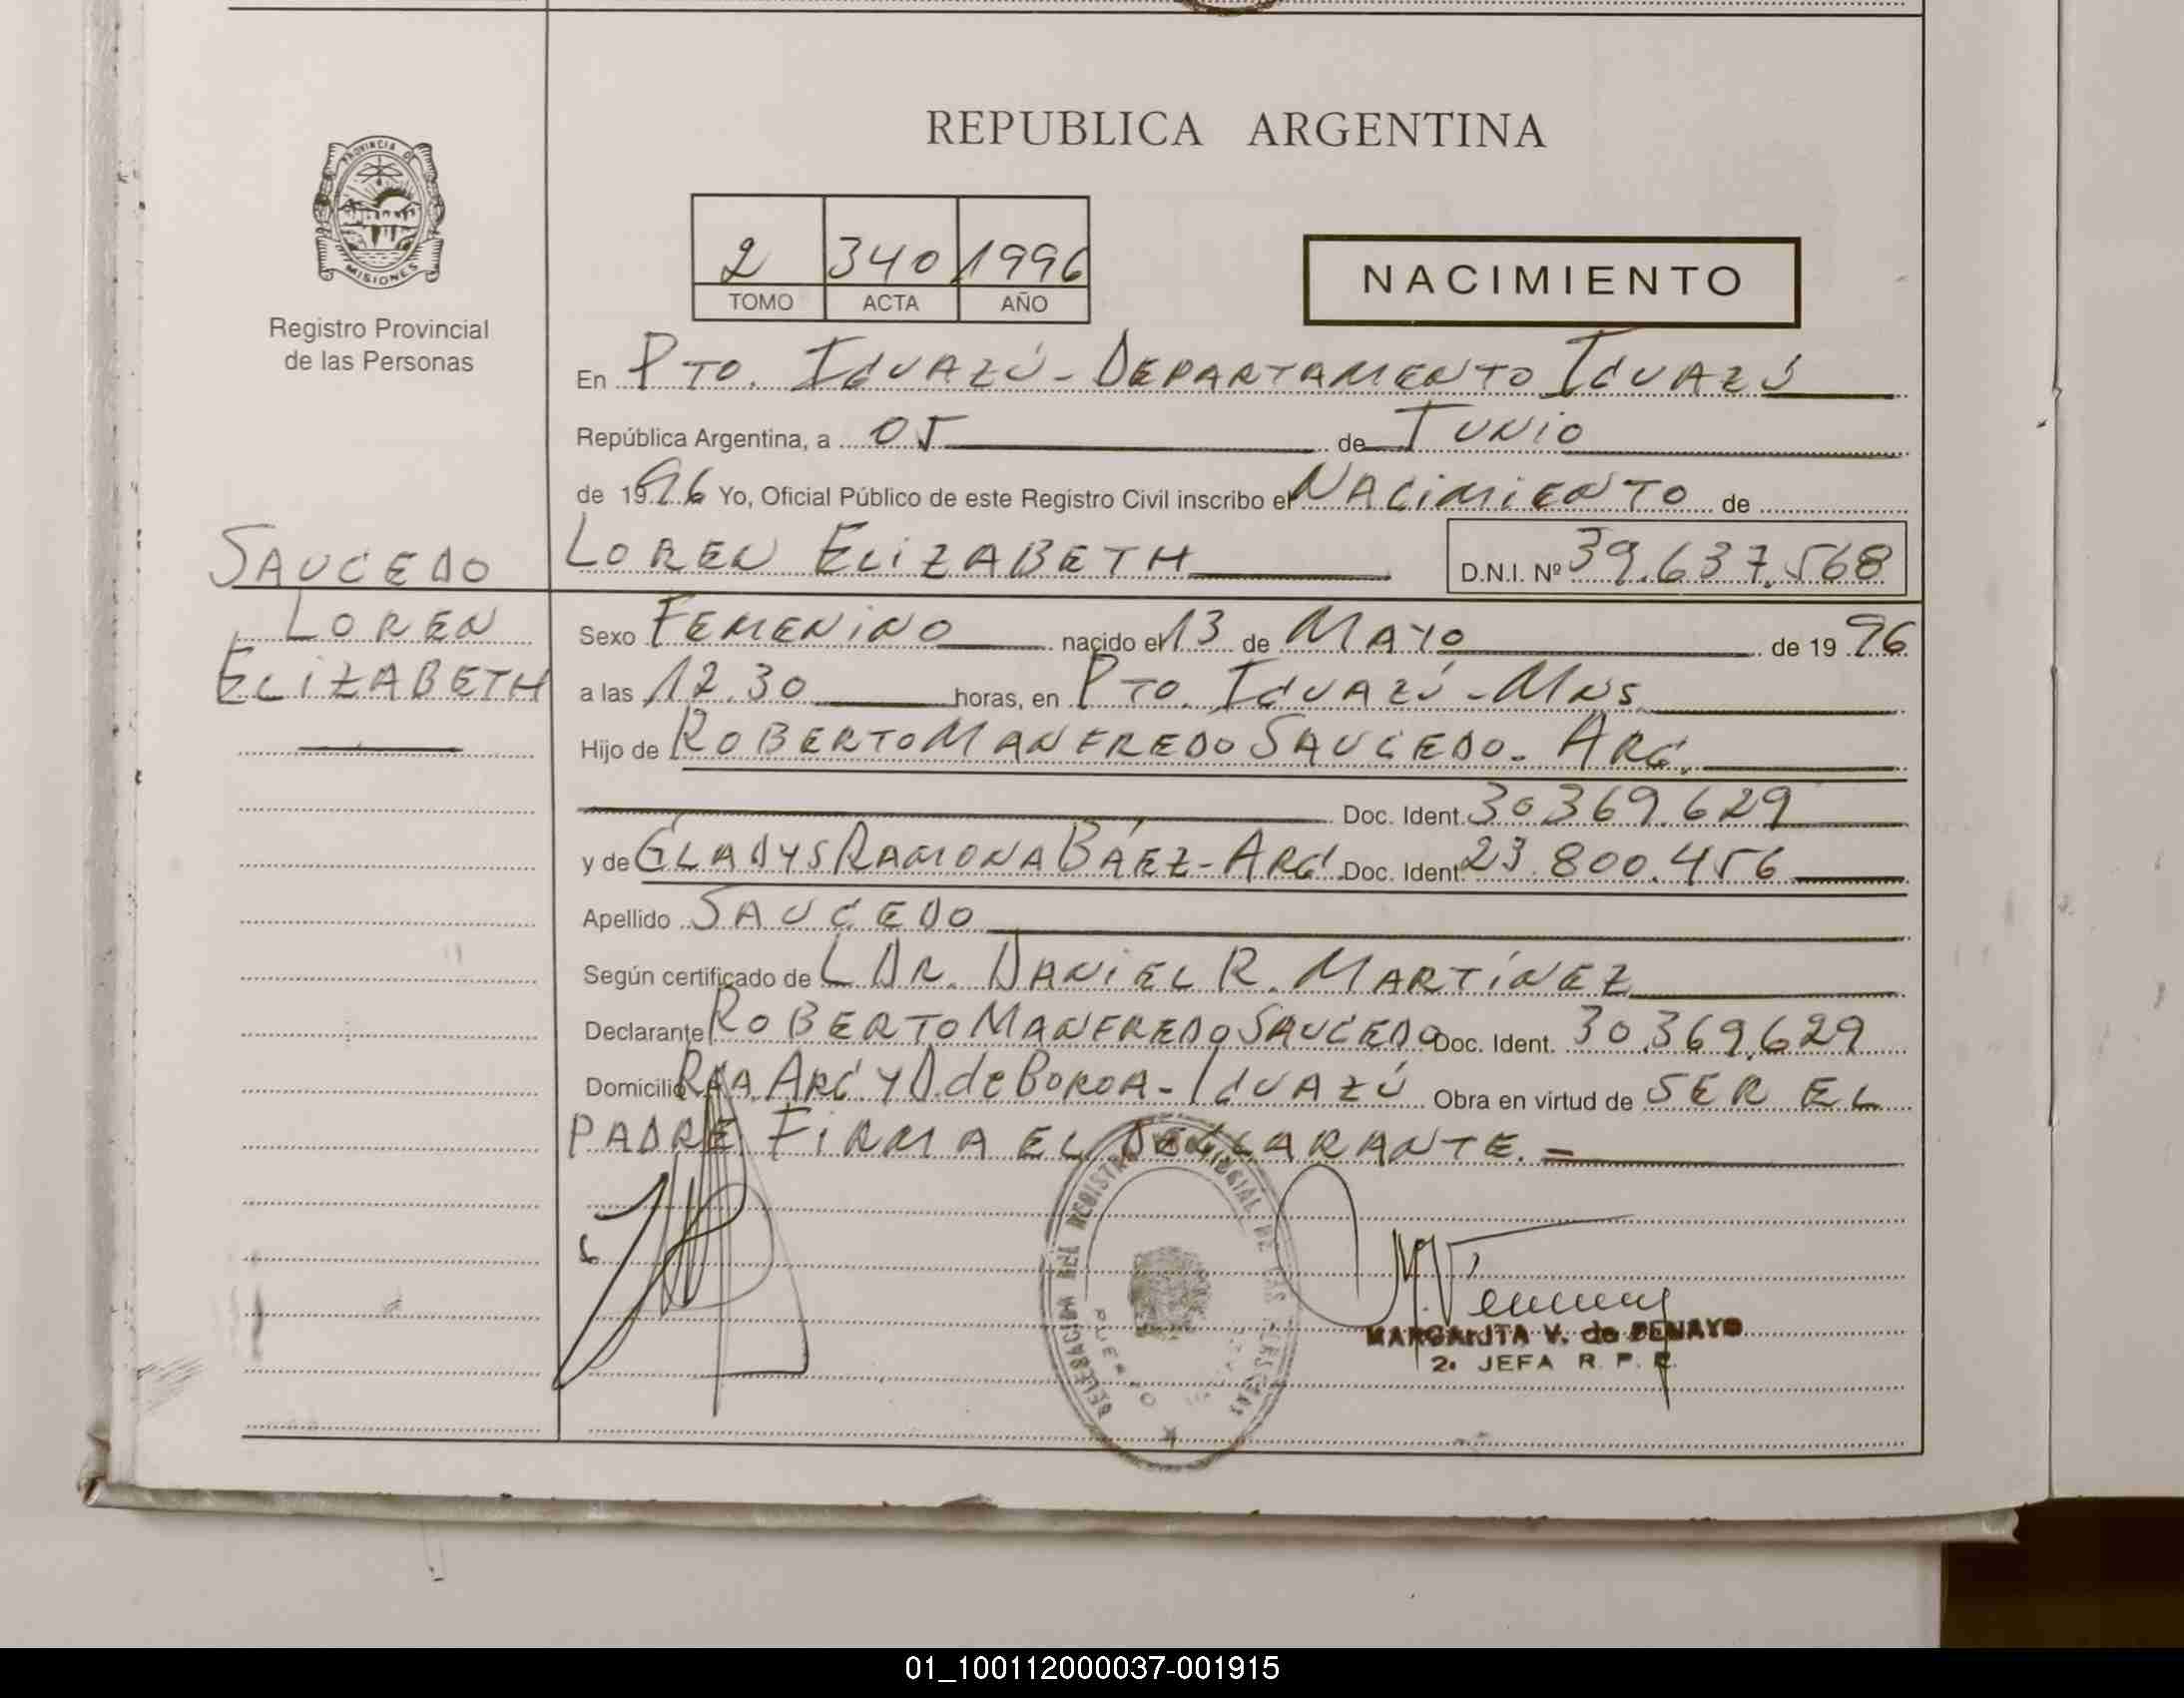 REPUBLICA ARGENTINA
PROVINCIA DE MISIONES
Registro Provincial
de las Personas
2 340 1996
TOMO ACTA AÑO
NACIMIENTO
En PTO. IGUAZÚ - DEPARTAMENTO IGUAZÚ
República Argentina, a 05 de JUNIO
de 1996 Yo, Oficial Público de este Registro Civil inscribo el NACIMIENTO de
SAUCEDO
LOREN
ELIZABETH
LOREN ELIZABETH D.N.I. Nº 39.637.568
Sexo FEMENINO nacido el 13 de MAYO de 1996
a las 12.30 horas, en PTO. IGUAZÚ - MNS.
Hijo de ROBERTO MANFREDO SAUCEDO - ARG.
Doc. Ident. 30369.629
y de GLADYS RAMONA BÁEZ - ARG. Doc. Ident. 23.800.456
Apellido SAUCEDO
Según certificado de L DR. DANIEL R. MARTÍNEZ
Declarante ROBERTO MANFREDO SAUCEDO Doc. Ident. 30.369.629
Domicilio ARG Y D. de BOROA - IGUAZÚ Obra en virtud de SER EL
PADRE FIRMA EL DECLARANTE. =
DELEGACION DEL REGISTRO PROVINCIAL DE LAS PERSONAS
PUERTO
MARGARITA V. de BENAYO
2ª JEFA R. P. P.
01_100112000037-001915